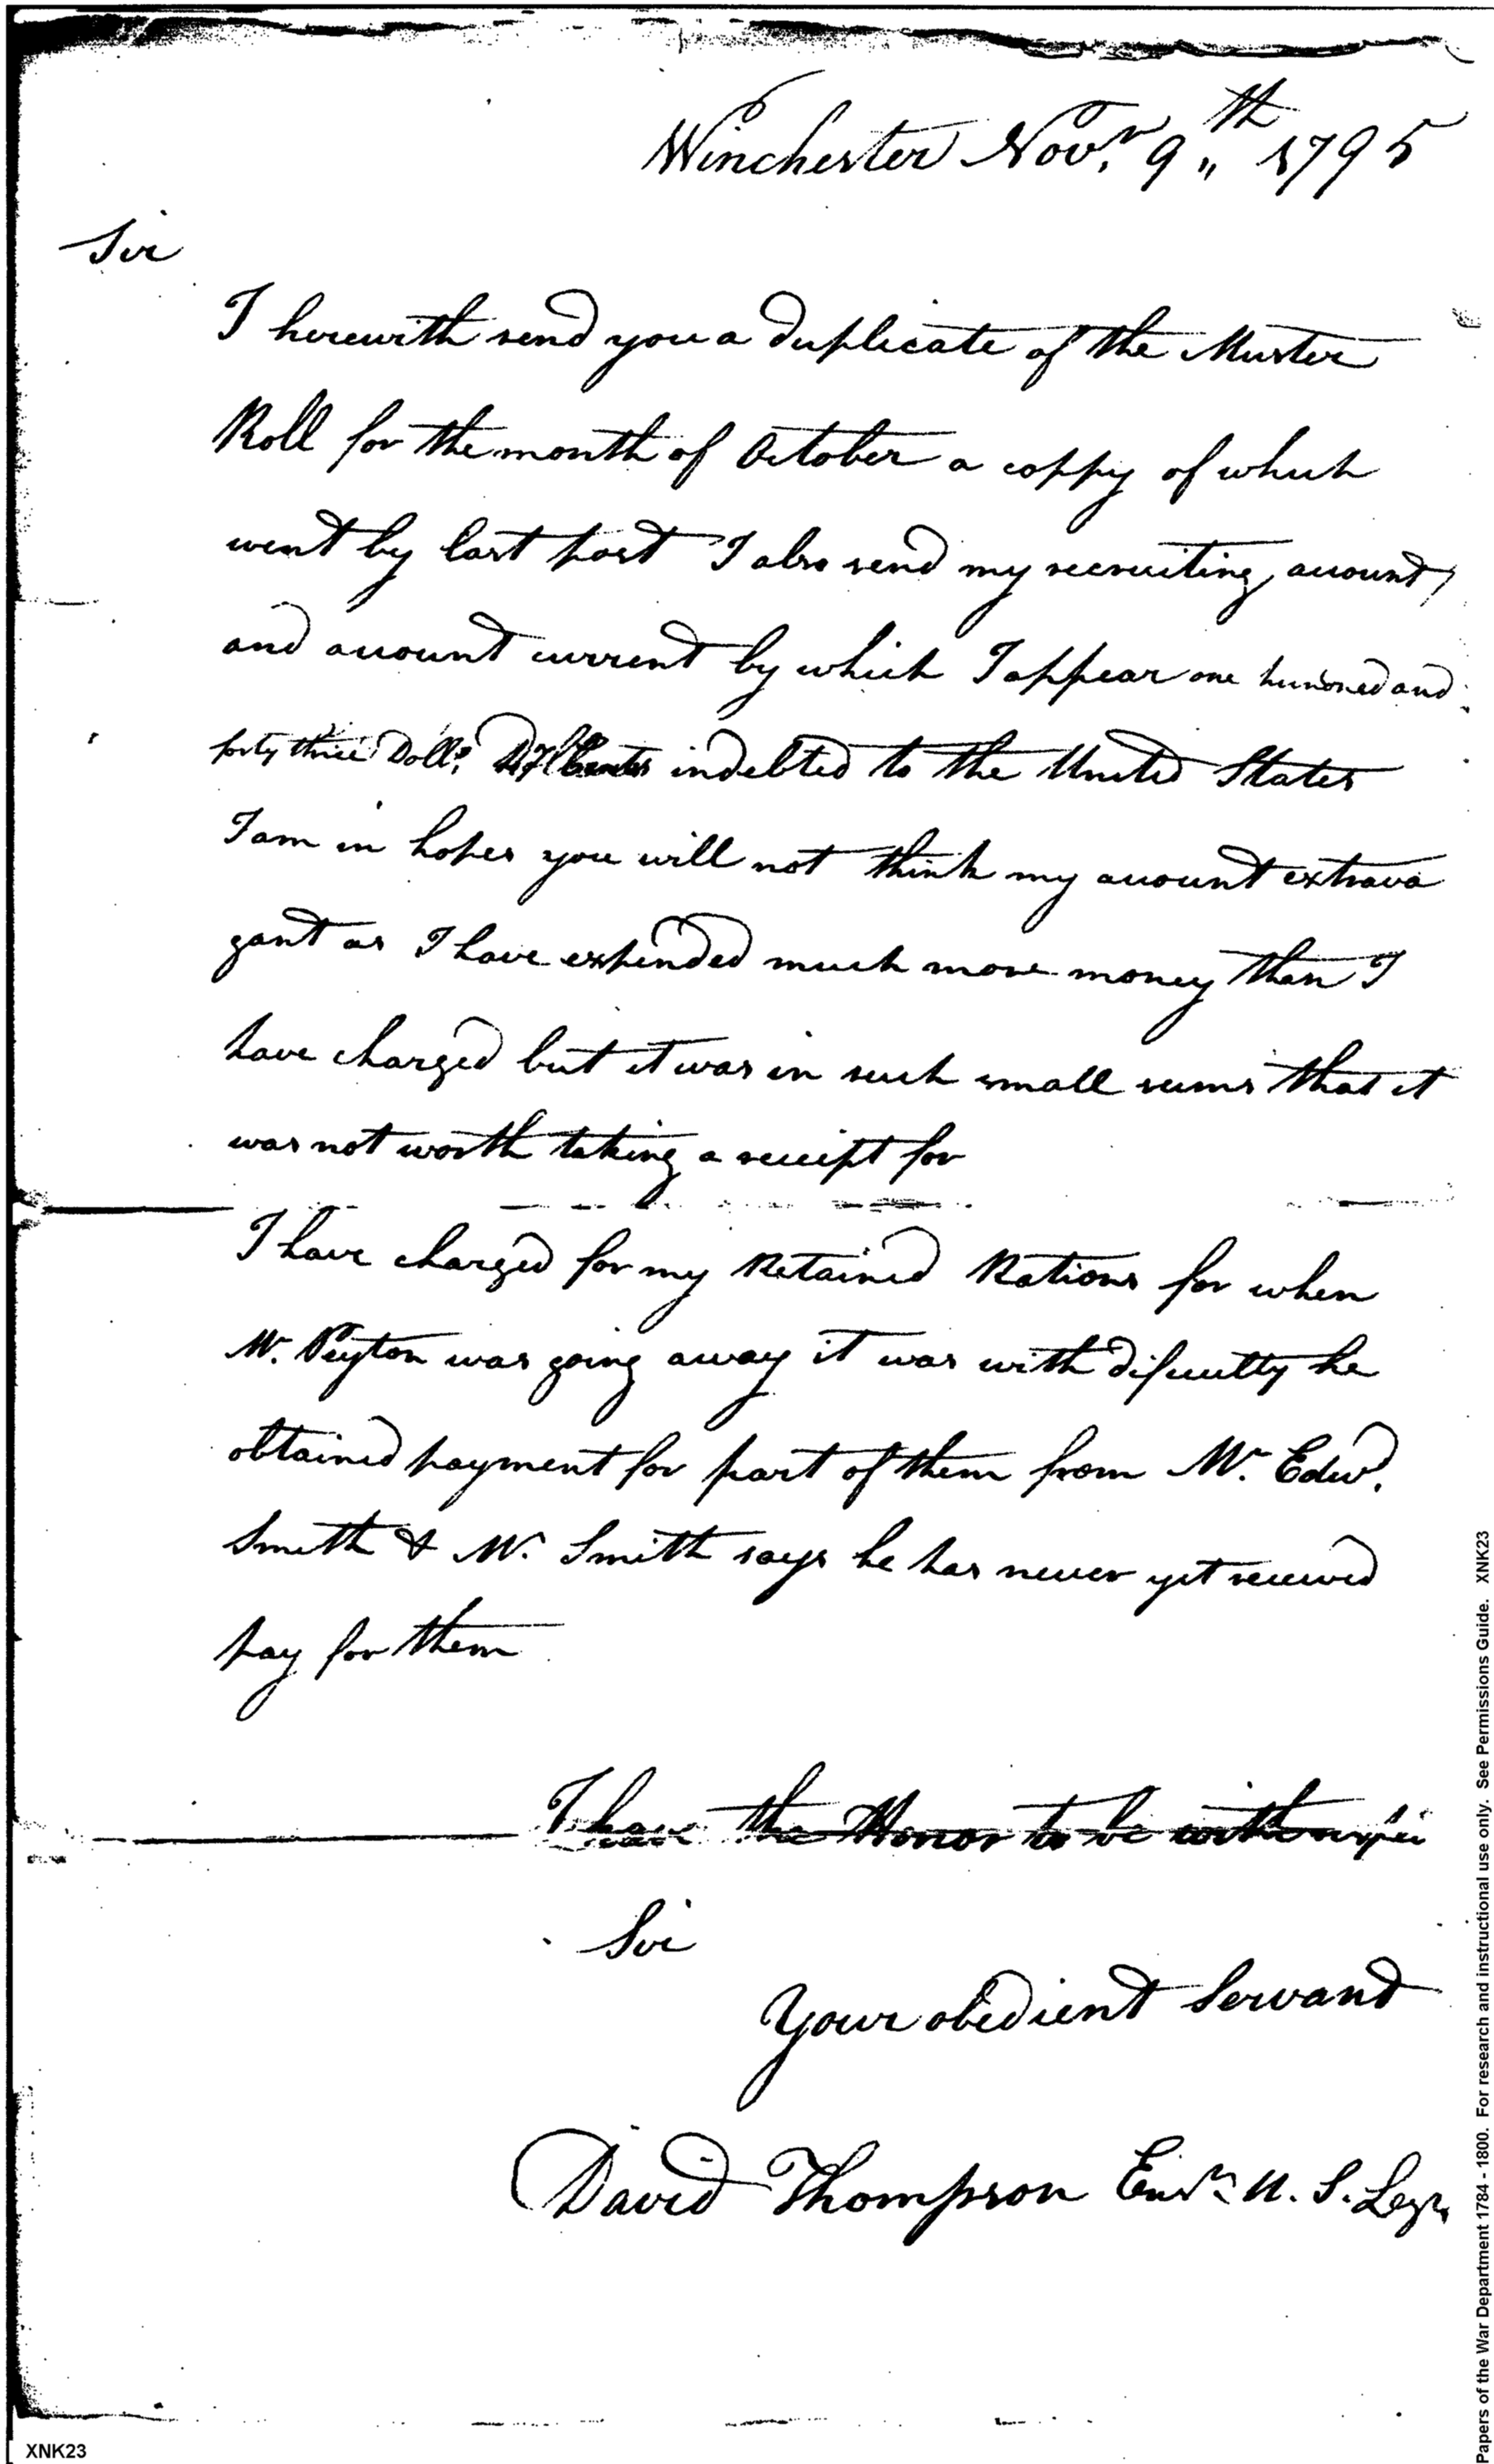 Winchester Novr. 9th 1795
Sir
I herewith send you a duplicate of the Muster
Roll for the month of October a coppy of which
went by last post I also send my recruiting account,
and account current by which I appear one hundred and
forty three Dolls. Cents indebted to the United States
I am in hopes you will not think my account extrava
gant as I have expended much more money than I
have charged but it was in such small sums that it
was not worth taking a receipt for
I have charged for my Retained Rations for when
Mr. Peyton was going away it was with dificulty he
obtained payment for part of them from Mr. Edwd.
Smith & Mr. Smith says he has never yet received
pay for them
I have the Honor to be with
Sir
Your obedient Servant
David Thompson Ensn. U. S. Legn.
XNK23
Papers of the War Department 1784 - 1800. For research and instructional use only. See Permissions Guide. XNK23